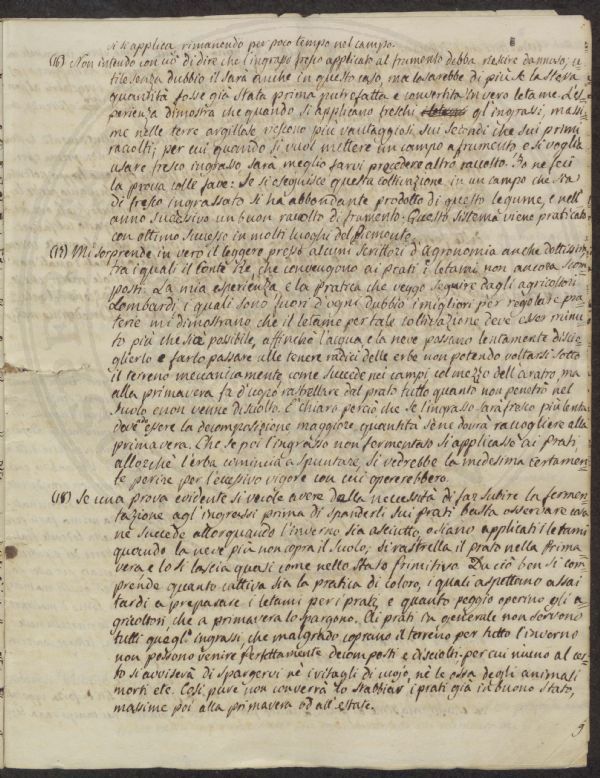 si si applica rimanendo per poco tempo nel campo.
(16) Non intendo con ciò di dire che l'ingrasso fresco applicato al frumento debba riescire dannoso; u-
tile senza dubbio il sarà anche in questo caso, ma lo sarebbe di più se la stessa
quantità fosse già stata prima putrefatta e convertita in vero letame. L'es-
perienza dimostra che quando si applicano freschi gl'ingrassi, massi-
me nelle terre argillose riescono più vantaggiosi sui secondi che sui primi
raccolti; per cui quando si vuol mettere un campo a frumento e si voglia
usare fresco ingrasso sarà meglio farvi precedere altro raccolto. Io ne feci
la prova colle fave: Se si eseguisce questa coltivazione in un campo che sia
di fresco ingrassato si ha abbondante prodotto di questo legume, e nell'
anno successivo un buon raccolto di frumento. Questo sistema viene praticato
con ottimo successo in molti luoghi del Piemonte.
Mi sorprende in vero il leggere presso alcuni scrittori d'agronomia anche dottissimi
tra i quali il Conte Re, che convengono ai prati i letami non ancora scom-
posti. La mia esperienza e la pratica che veggo seguire dagli agricoltori
Lombardi i quali sono fuori d'ogni dubbio i migliori per regolare pra-
terie mi dimostrano che il letame per tale coltivazione deve esser minu-
to più che sia possibile, affinchè l'acqua e la neve possano lentamente discio-
glierlo e farlo passare alle tenere radici delle erbe non potendo voltarsi sotto
il terreno meccanicamente come succede nei campi col mezzo dell'aratro, ma
alla primavera fa d'uopo rastrellare dal prato tutto quanto non penetrò nel
suolo e non venne disciolto. È chiaro perciò che se l'ingrasso sarà fresco più lenta
deve essere la decomposizione maggiore quantità se ne dovrà raccogliere alla
primavera. Che se poi l'ingrasso non fermentato si applicasse ai prati
allorchè l'erba comincia a spuntare, si vedrebbe la medesima certamen-
te perire per l'eccessivo vigore con cui opererebbero.
(18) Se una prova evidente si vuole avere della necessità di far subire la fermen-
tazione agl'ingrassi prima di spanderli sui prati basta osservare cosa
ne succede allorquando l'inverno sia asciutto, o siano applicati i letami
quando la neve più non copra il suolo; si rastrella il prato nella prima
vera e lo si lascia quasi come nello stato primitivo. Da ciò ben si com-
prende quanto cattiva sia la pratica di coloro, i quali aspettano assai
tardi a preparare i letami per i prati, e quanto peggio operino gli a-
gricoltori che a primavera lo spargono. Ai prati in generale non servono
tutti quegl'ingrassi, che malgrado coprano il terreno per tutto l'inverno
non possono venire perfettamente decomposti e disciolti; per cui niuno al cer-
to si avviserà di spargervi nè i ritagli di cuojo, nè le ossa degli animali
morti etc. Così pure non converrà lo stabbiar i prati già in buono stato,
massime poi alla primavera od all'estate.